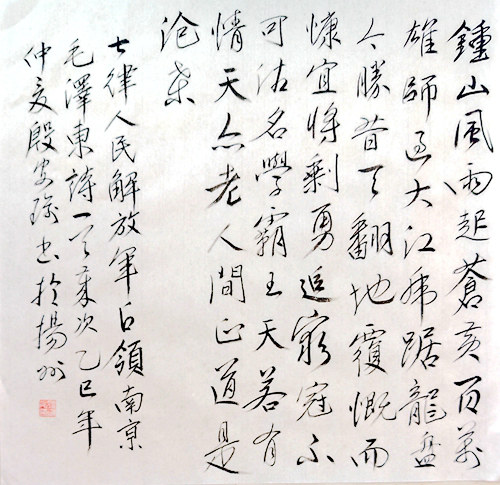 鍾山風雨起蒼黃百萬
雄師過大江虎踞龍盤
今勝昔天翻地覆慨而
慷宜將剩勇追窮寇不
可沽名學霸王天若有
情天亦老人間正道是
滄桑
七律人民解放軍占領南京
毛澤東詩一首歲次乙巳年
仲夏殷书於揚州